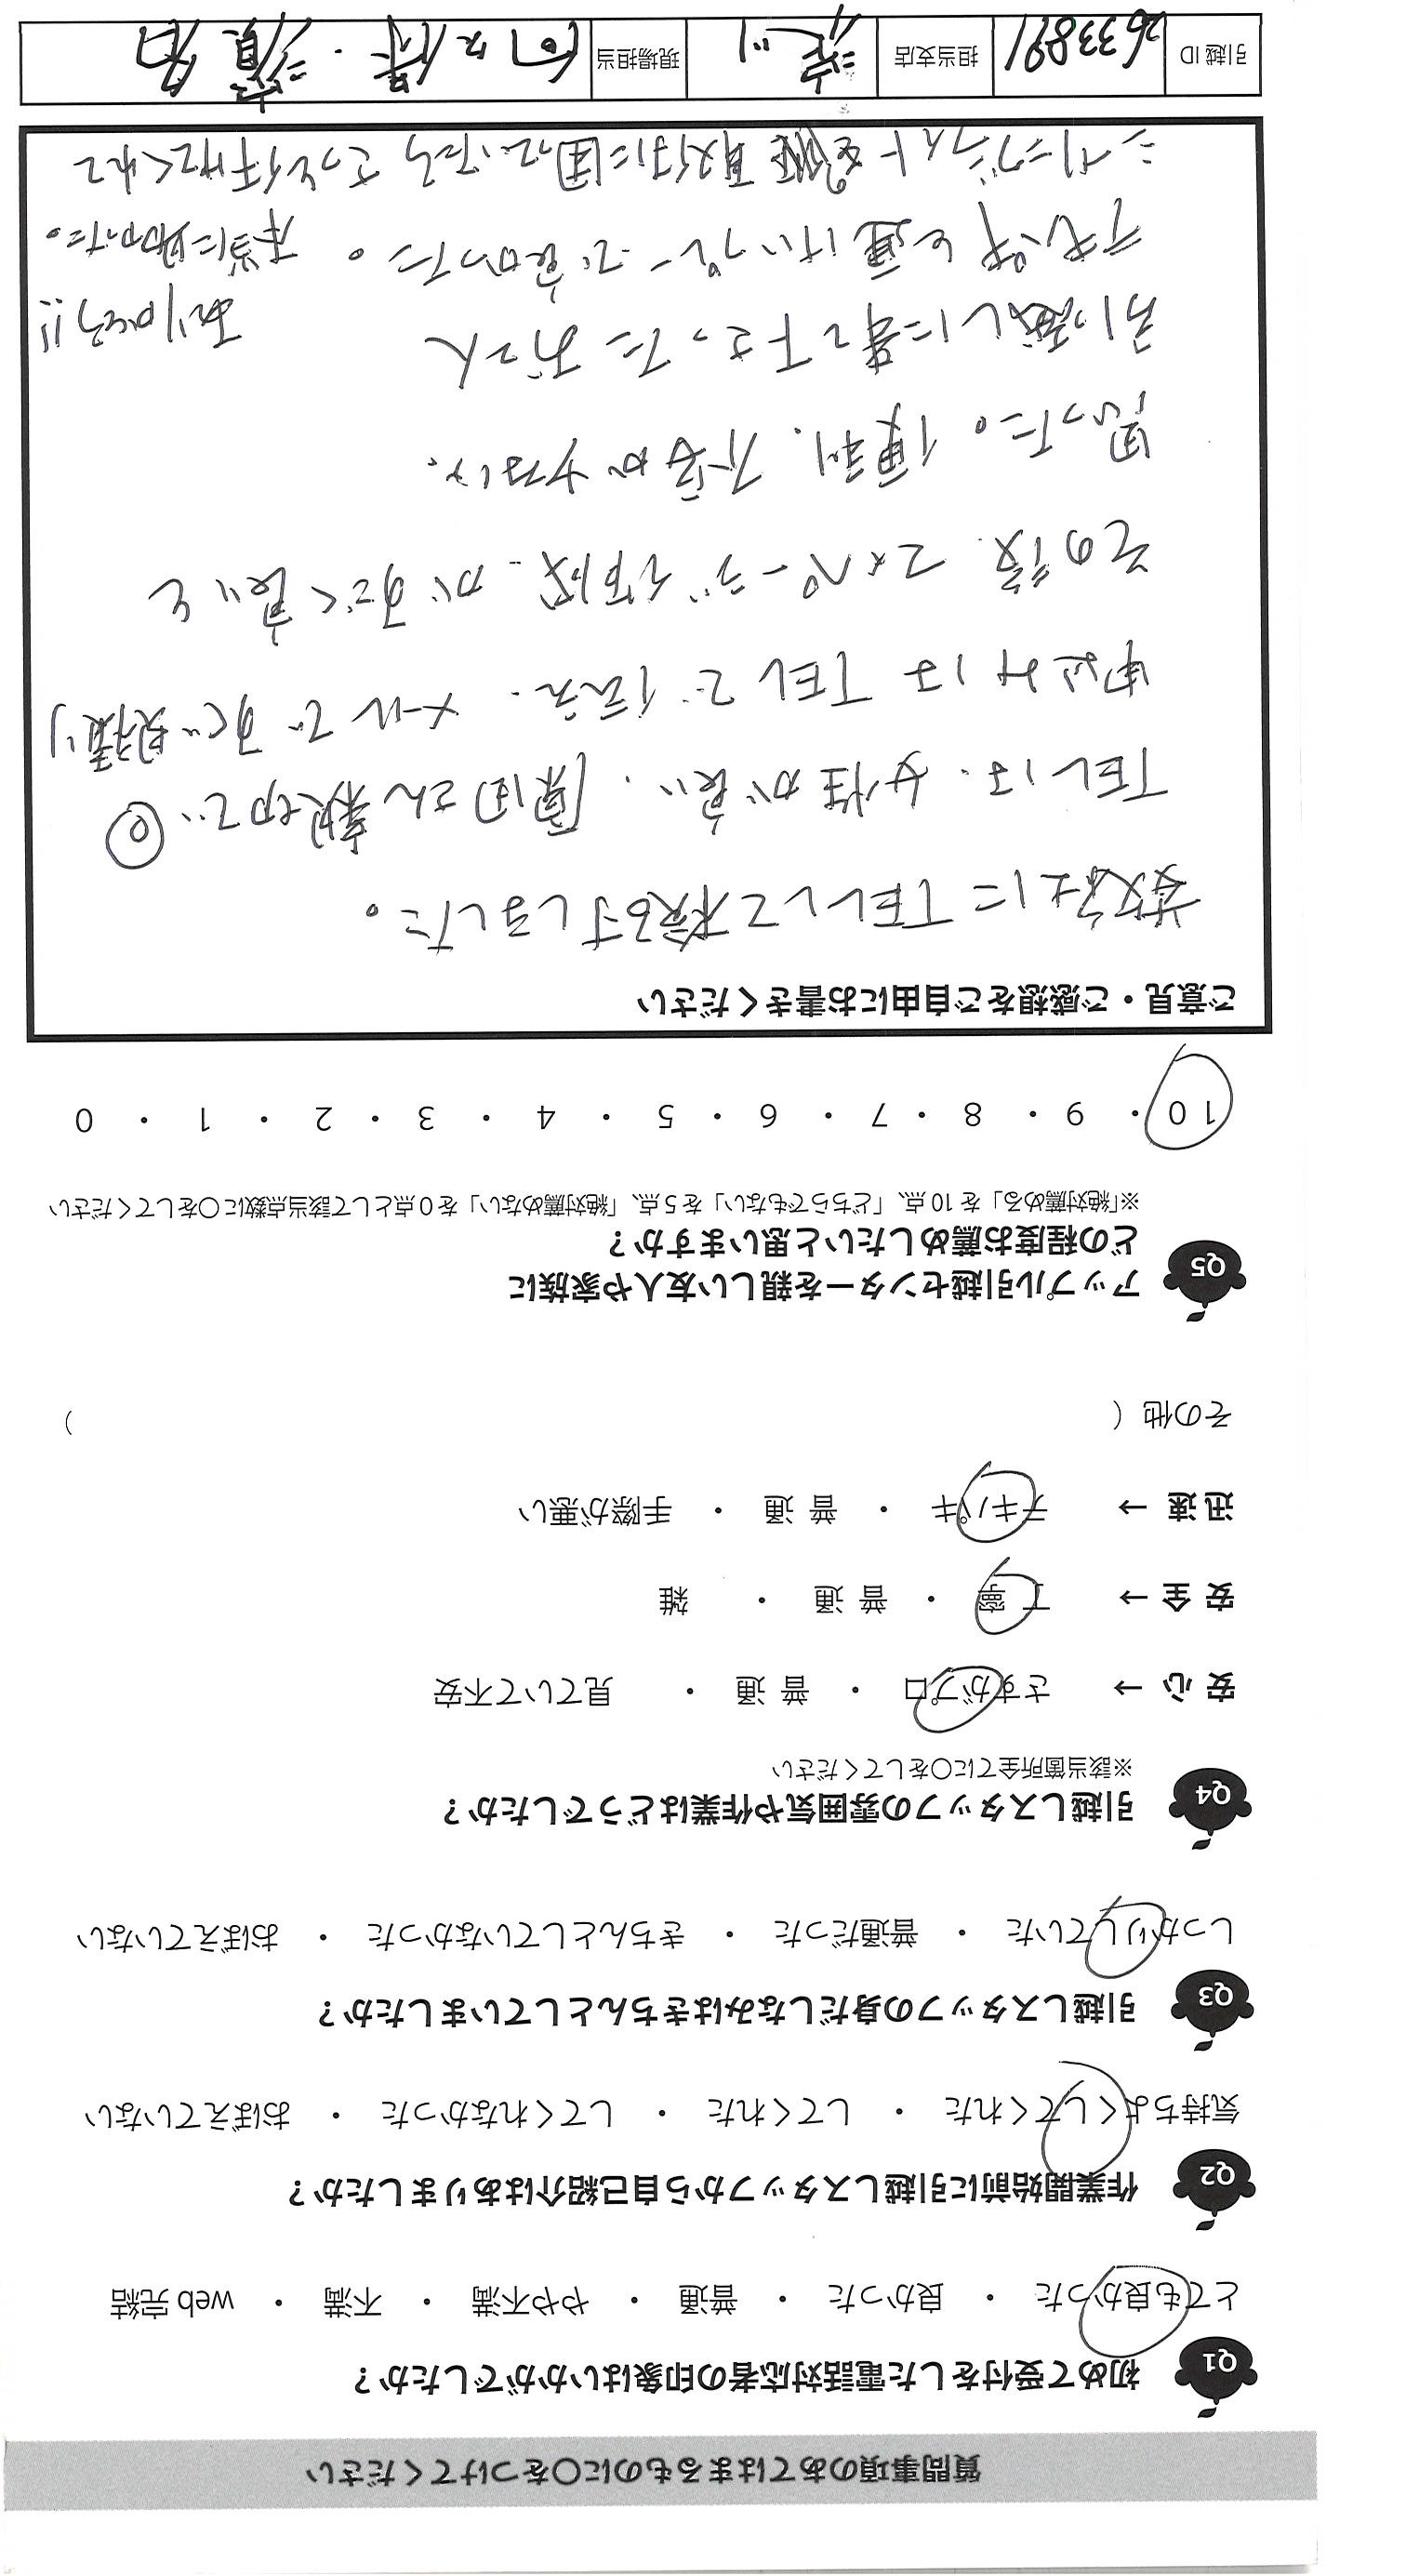 質問事項のあてはまるものに〇をつけてください
Q1 初めて受付をした電話対応者の印象はいかがでしたか？
とても良かった ・ 良かった ・ 普通 ・ やや不満 ・ 不満 ・ web 完結
Q2 作業開始前に引越しスタッフから自己紹介はありましたか？
気持ちよくしてくれた ・ してくれた ・ してくれなかった ・ おぼえていない
Q3 引越しスタッフの身だしなみはきちんとしていましたか？
しっかりしていた ・ 普通だった ・ きちんとしていなかった ・ おぼえていない
Q4 引越しスタッフの雰囲気や作業はどうでしたか？
※該当箇所全てに〇をしてください
安 心 → さすがプロ ・ 普 通 ・ 見ていて不安
安 全 → 丁 寧 ・ 普 通 ・ 雑
迅 速 → テキパキ ・ 普 通 ・ 手際が悪い
その他（ ）
Q5 アップル引越センターを親しい友人や家族に
どの程度お薦めしたいと思いますか？
※「絶対薦める」を 10 点、「どちらでもない」を 5 点、「絶対薦めない」を 0 点として該当点数に〇をしてください
10 ・ 9 ・ 8 ・ 7 ・ 6 ・ 5 ・ 4 ・ 3 ・ 2 ・ 1 ・ 0
ご意見・ご感想をご自由にお書きください
数社にTELして検討しました。
TELは、女性が良い、原田さん親切で◎
申込みはTELで伝え、メールですぐ見積り
その後、マイページ作成、がすごく良いと
思った。便利、不安が少ない、
引越しに来て下さったお二人
礼も 運 で良かった。 本当に助かった。
ありがとう!!
に困っていたら さっと付けてくれて
引越 ID 2633891 担当支店 現場担当